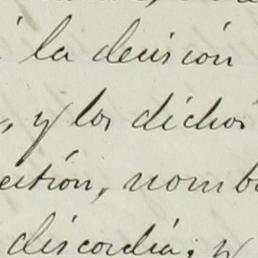 la decision
, y los dichos
estión, nomb
discordia; y